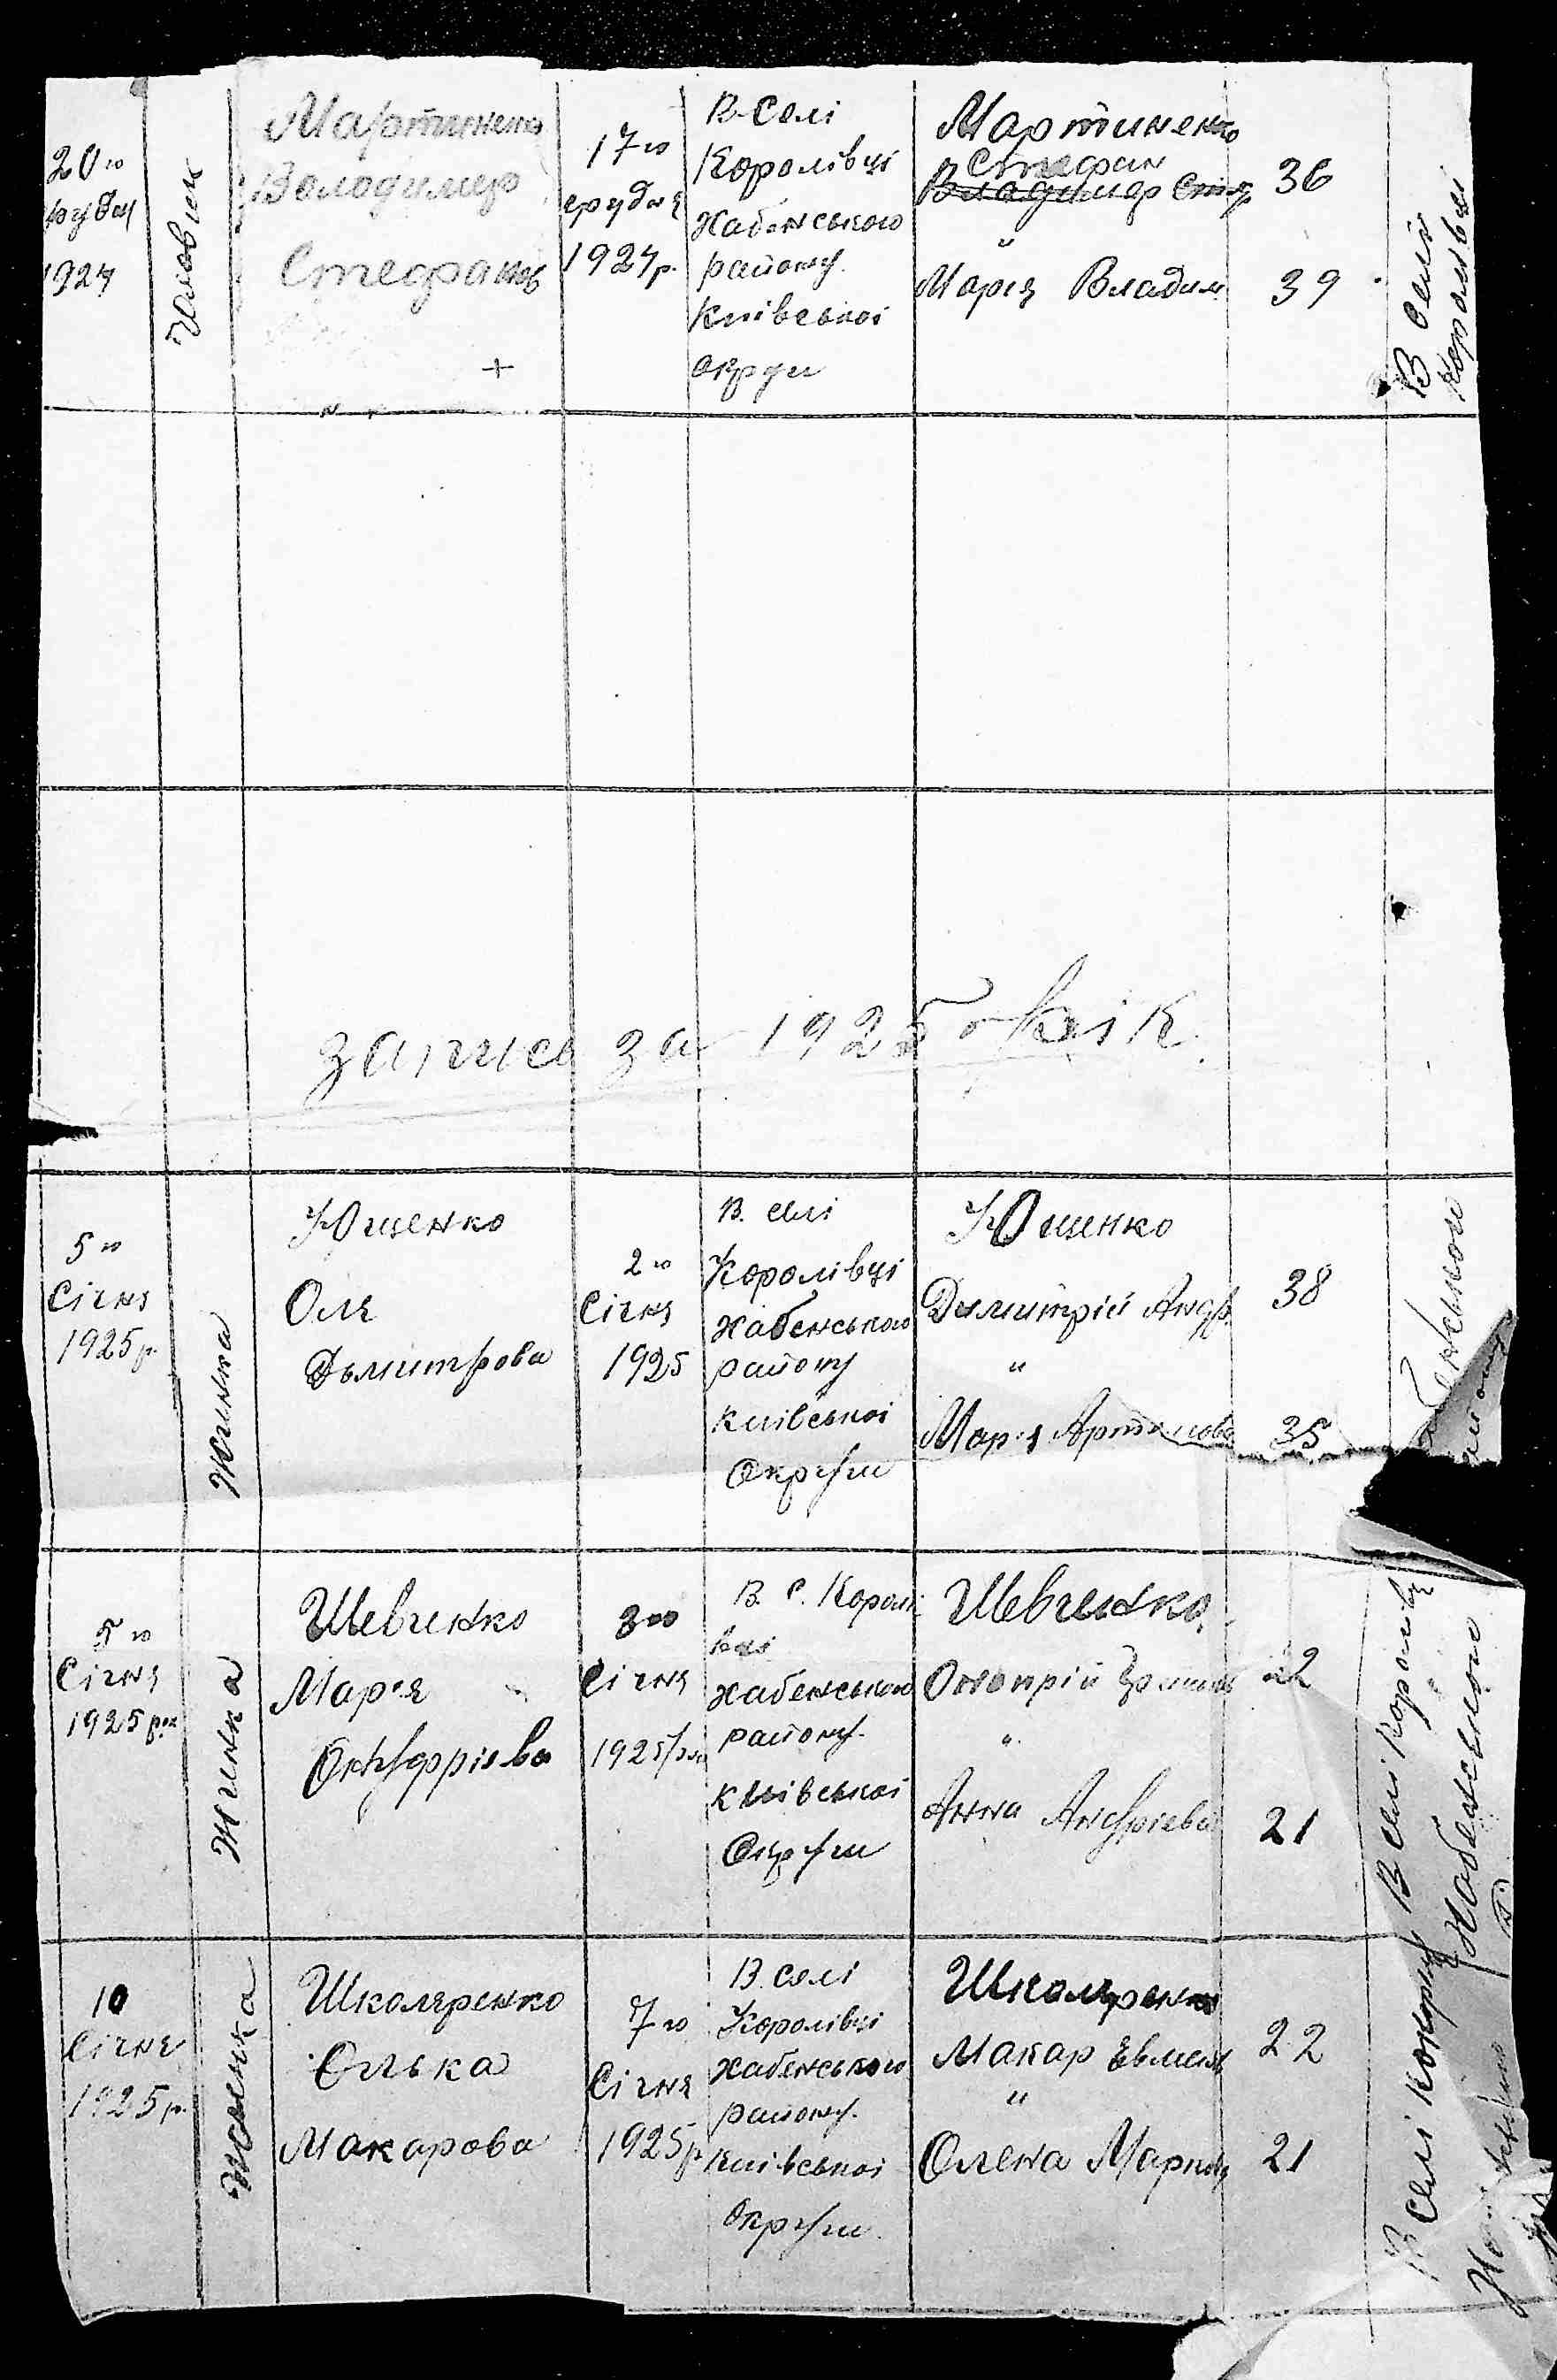 20го
грудня
1924
Чловік
Мартиненко
Володимер
Стефанів
+
17го
грудня
1924р.
В Селі
Королівці
Хабенського
району.
Київської
окрги
Мартиненко
Стефан
Владимер Стеф
"
Марія Владим
36
39
В селі
Королівці
запись за 1925 рік.
5го
Січня
1925р.
Жинка
Ющенко
Оля
Дьмитрова
2го
Січня
1925
В. селі
Королівці
Хабенського
району
Київської
Округи
Ющенко
Димитрій Андр.
"
Марія Артемова
38
35
5го
Січня
1925 рок
Жинка
Шевченко
Марія
Онуфріева
3го
Січня
1925
В. С. Королі-
вці
Хабенського
району.
Київської
Округи
Шевченко
Оноприй
"
Анна Андріева
22
21
В селі Королівці
Хабенського
10
Січня
1925р.
Жінка
Школяренко
Олька
Макарова
7го
Січня
1925р
В. селі
Королівці
Хабенського
району.
Київської
Округи.
Школяренко
Макар Евмен
"
Олена Марков
22
21
В селі